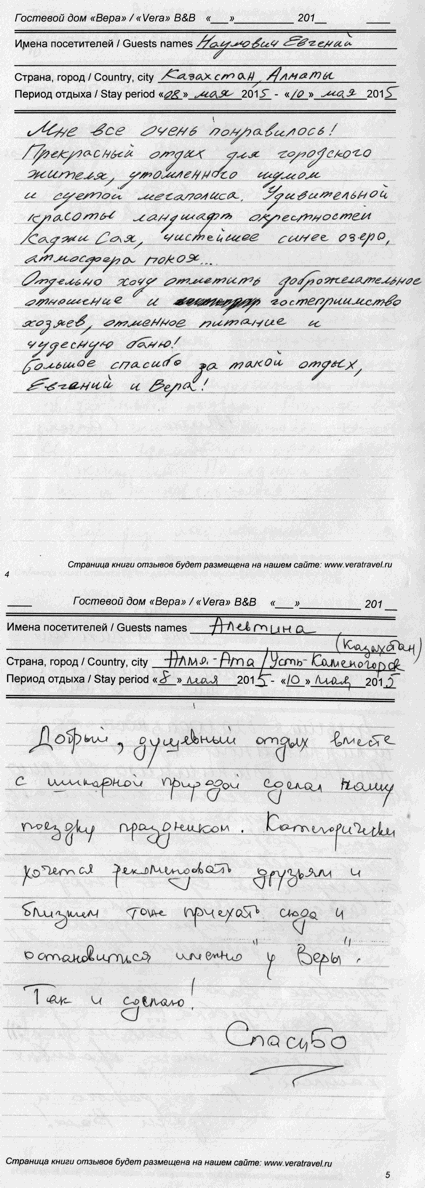 Гостевой дом «Вера» / «Vera» B&B «___»____________ 201__
Имена посетителей / Guests names Наумович Евгений
Страна, город / Country, city Казахстан, Алматы
Период отдыха / Stay period «08» мая 2015 - «10» мая 2015
Мне все очень понравилось!
Прекрасный отдых для городского
жителя, утомленного шумом
и суетой мегаполиса. Удивительной
красоты ландшафт окрестностей
Каджи Сая, чистейшее синее озеро,
атмосфера покоя...
Отдельно хочу отметить доброжелательное
отношение и гостеприимство
хозяев, отменное питание и
чудесную баню!
Большое спасибо за такой отдых,
Евгений и Вера!
Страница книги отзывов будет размещена на нашем сайте: www.veratravel.ru
4
Гостевой дом «Вера» / «Vera» B&B «___»____________ 201__
Имена посетителей / Guests names Алевтина
(Казахстан)
Страна, город / Country, city Алма-Ата / Усть-Каменогорск
Период отдыха / Stay period «8» мая 2015 - «10» мая 2015
Добрый, душевный отдых вместе
с шикарной природой сделал нашу
поездку праздником. Категорически
хочется рекомендовать друзьям и
близким тоже приехать сюда и
остановиться именно "у Веры".
Так и сделаю!
Спасибо
Страница книги отзывов будет размещена на нашем сайте: www.veratravel.ru
5